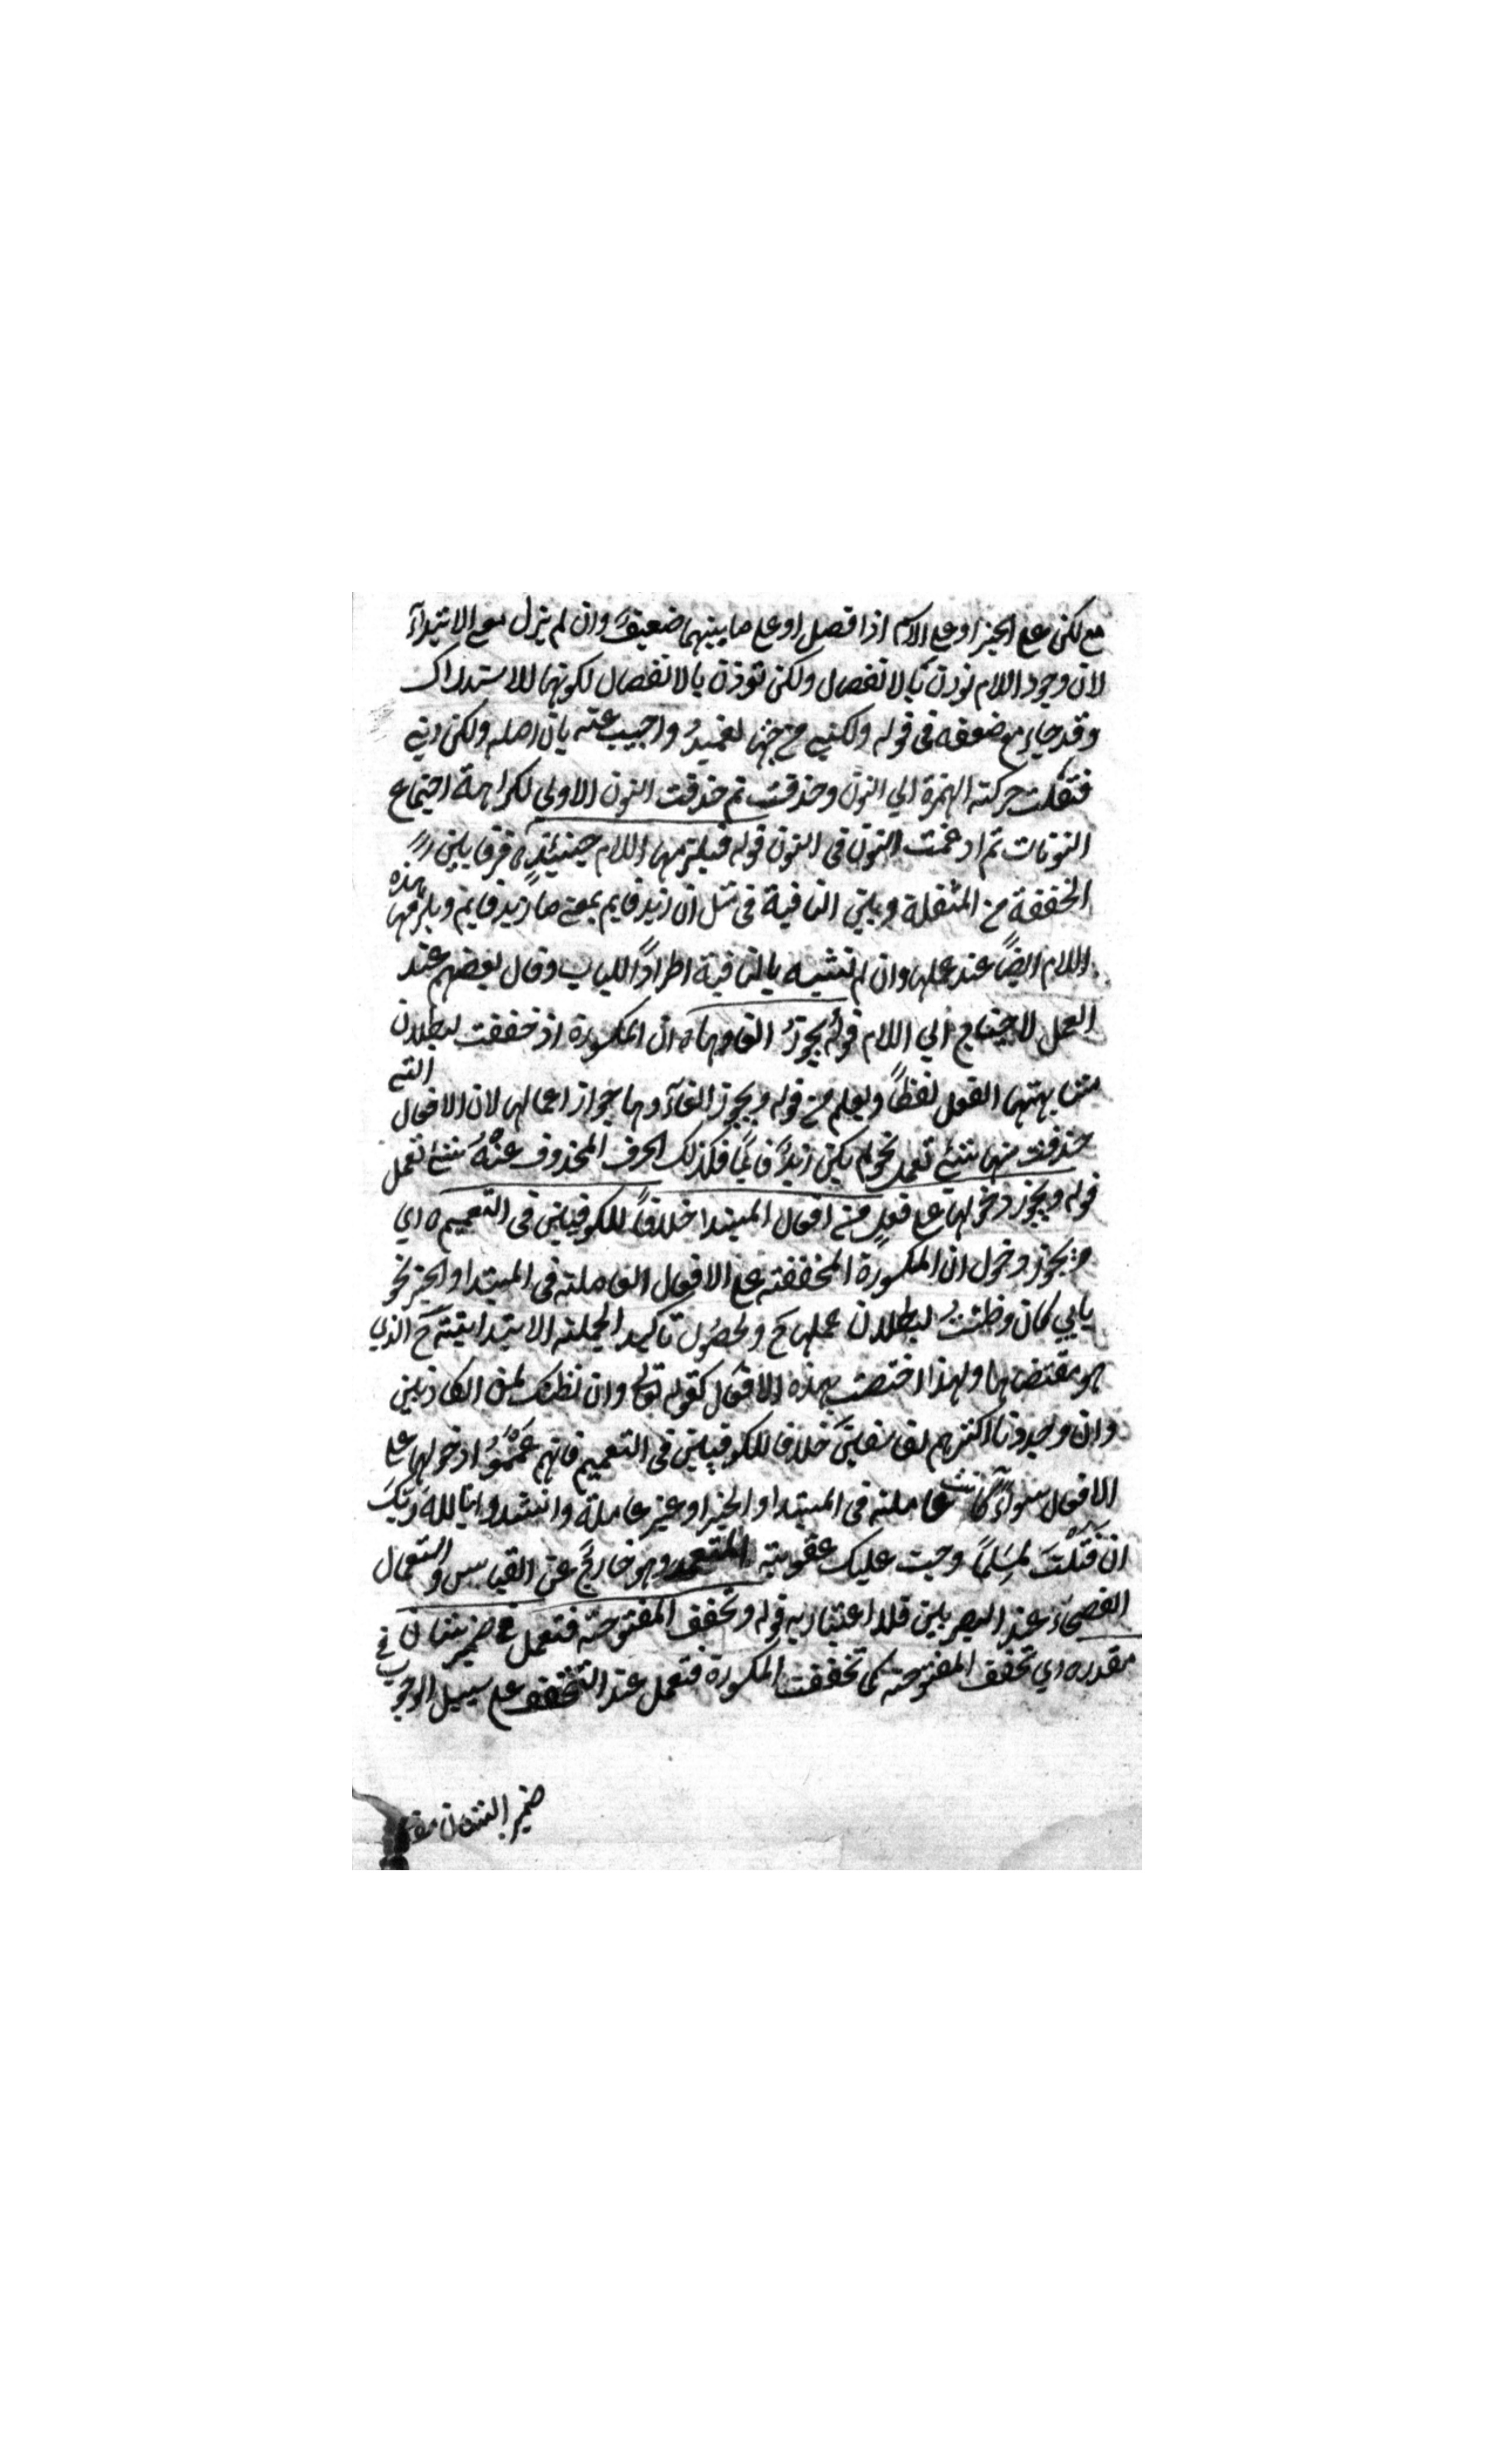 مع لكن على الخبر او على الاسم اذا فصل او على ما بينهما ضعيف وان لم يزل معنى الابتداء
لان وجود اللام تؤذن بالانفصال ولكن تؤذن بالانفصال لكونها للاستدراك
وقد جاء مع ضعفه فى قوله ولكننى من حبها لعميد واجيب عنه بان اصله ولكن اننى
فنقلت حركة الهمزة الي النون وحذفت ثم حذفت النون الاولي لكراهة اجتماع
النونات ثم ادغمت النون فى النون قوله فيلزمها اللام حينئذ فرقا بين
المخففة من المثقلة وبين النافية فى مثل ان زيد قايم بمعنى ما زيد قايم ويلزمها هذه
اللام ايضًا عند عملها وان لم تشبه بالنافية اطرادًا للباب وقال بعضهم عند
العمل لا يحتاج الي اللام قوله يجوز الغاوها ان المكسورة اذ خففت لبطلان
مشابهتها الفعل لفظًا ويعلم من قوله ويجوز الغاؤها جواز اعمالها لان الافعال التي
حذفت منها شئ تعمل نحو لم يكن زيدًا قائمًا فكذلك الحرف المحذوف عنه شئ تعمل
قوله ويجوز دخولها على فعل من افعال المبتدا خلافًا للكوفيين فى التعميم اي
ويجوز دخول ان المكسورة المخففة على الافعال العاملة فى المبتدا والخبر نحو
بابي كان وظننت لبطلان عملها ح ولحصول تاكيد الجملة الابتدائية ح الذي
هو مقتضاها ولهذا اختصت بهذه الافعال كقوله تع وان نظنك لمن الكاذبين
وان وجدونا اكثرهم لفاسقين خلافا للكوفيين فى التعميم فانهم عمموا دخولها على
الافعال سواء كانت عاملة فى المبتدا والخبر او غير عاملة وانشدوا بالله ربك
ان قتلت لمسلمًا وجبت عليك عقوبة المتعمد وهو خارج عن القياس واستعمال
الفصحاء عند البصريين فلا اعتبار به قوله وتخفف المفتوحة فتعمل في ضمير شان
مقدر اي تخفف المفتوحة كما تخففت المكسورة فتعمل عند التخفف على سبيل الوجوب في
ضمير الشان